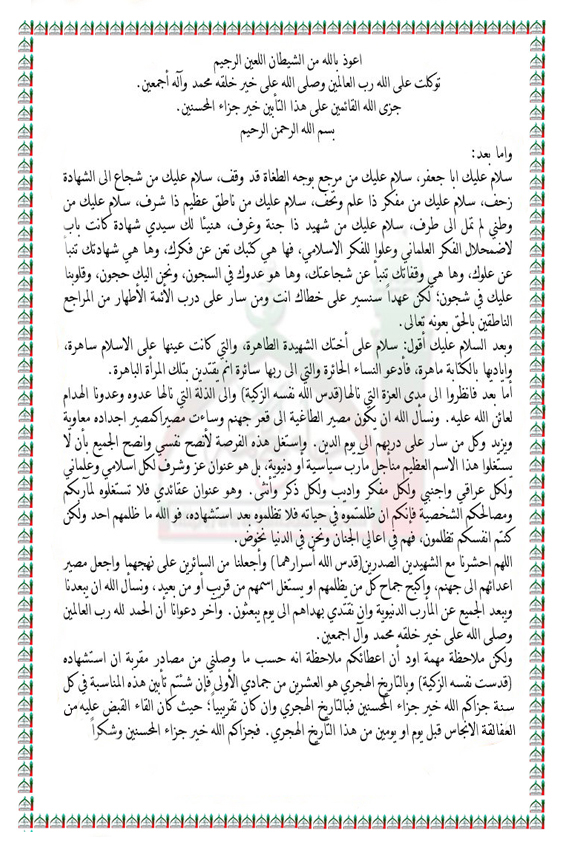 اعوذ بالله من الشيطان اللعين الرجيم
توكلت على الله رب العالمين وصلى الله على خير خلقه محمد وآله أجمعين.
جزى الله القائمين على هذا التأبين خير جزاء المحسنين.
بسم الله الرحمن الرحيم
واما بعد:
سلام عليك ابا جعفر، سلام عليك من مرجع بوجه الطغاة قد وقف، سلام عليك من شجاع الى الشهادة
زحف، سلام عليك من مفكر ذا علم وتحف، سلام عليك من ناطق عظيم ذا شرف، سلام عليك من
وطني لم تمل الى طرف، سلام عليك من شهيد ذا جنة وغرف، هنيئا لك سيدي شهادة كانت باب
لاضمحلال الفكر العلماني وعلوا للفكر الاسلامي، فها هي كتبك تعن عن فكرك، وها هي شهادتك تنبأ
عن علوك، وها هي وقفاتك تنبأ عن شجاعتك، وها هو عدوك في السجون، ونحن اليك حجون، وقلوبنا
عليك في شجون؛ لكن عهداً سنسير على خطاك انت ومن سار على درب الائمة الأطهار من المراجع
الناطقين بالحق بعونه تعالى.
وبعد السلام عليك أقول: سلام على أختك الشهيدة الطاهرة، والتي كانت عينها على الاسلام ساهرة،
واياديها بالكتابة ماهرة، فأدعو النساء الحائرة والتي الى ربها سائرة انتم يقتدين بتلك المرأة الباهرة.
أما بعد فانظروا الى مدى العزة التي نالها(قدس الله نفسه الزكية) والى الذلة التي نالها عدوه وعدونا الهدام
لعائن الله عليه. ونسأل الله ان يكون مصير الطاغية الى قعر جهنم وساءت مصيراكمصير اجداده معاوية
ويزيد وكل من سار على دربهم الى يوم الدين. واستغل هذه الفرصة لأنصح نفسي وانصح الجميع بأن لا
يستغلوا هذا الاسم العظيم مناجل مآرب سياسية أو دنيوية، بل هو عنوان عز وشرف لكل اسلامي وعلماني
ولكل عراقي واجنبي ولكل مفكر واديب ولكل ذكر وأنثى. وهو عنوان عقائدي فلا تستغلوه لمآربكم
ومصالحكم الشخصية فإنكم ان ظلمتموه في حياته فلا تظلموه بعد استشهاده، فو الله ما ظلمهم احد ولكن
كنتم انفسكم تظلمون، فهم في اعالي الجنان ونحن في الدنيا نخوض.
اللهم احشرنا مع الشهيدين الصدرين(قدس الله أسرارهما) وأجعلنا من السائرين على نهجهما واجعل مصير
اعدائهم الى جهنم، واكبح جماح كل من يظلمهم او يستغل اسمهم من قريب أو من بعيد، ونسأل الله ان يبعدنا
ويبعد الجميع عن المآرب الدنيوية وان نقتدي بهداهم الى يوم يبعثون. وآخر دعوانا أن الحمد لله رب العالمين
وصلى الله على خير خلقه محمد وآل اجمعين.
ولكن ملاحظة مهمة اود أن اعطائكم ملاحظة انه حسب ما وصلني من مصادر مقربة ان استشهاده
(قدست نفسه الزكية) وبالتاريخ الهجري هو العشرين من جمادي الأولى فإن شئتم تأبين هذه المناسبة في كل
سنة جزاكم الله خير جزاء المحسنين فبالتاريخ الهجري وان كان تقريبياً؛ حيث كان القاء القبض عليه من
العفالقة الانجاس قبل يوم او يومين من هذا التأريخ الهجري. فجزاكم الله خير جزاء المحسنين وشكراً